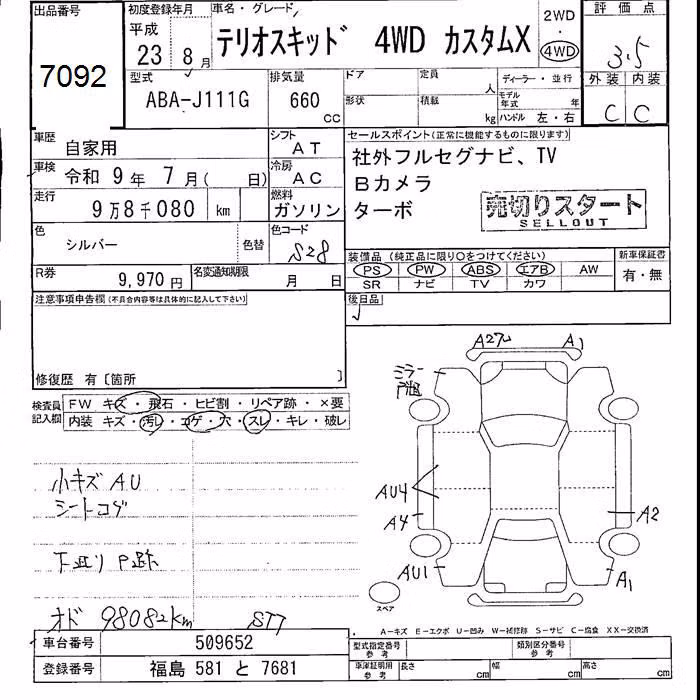 出品番号
7092
初度登録年月
平成
23 8月
車名・グレード
テリオスキッド 4WD カスタムX
2WD
・
4WD
評価点
3.5
外装 内装
C C
型式
ABA-J111G
排気量
660
cc
ドア
形状
定員
人
積載
kg
ディーラー・並行
モデル
年式
年
ハンドル 左・右
車歴
自家用
シフト
AT
車検
令和 9年 7月( 日)
冷房
AC
走行
9万8千080 km
燃料
ガソリン
色
シルバー
色替
色コード
S28
R券
9,970円
名変通知期限
月 日
セールスポイント(正常に機能するものに限ります)
社外フルセグナビ、TV
Bカメラ
ターボ
売切りスタート
SELLOUT
装備品 (純正品に限り○をつけてください)
PS PW ABS エアB AW
SR ナビ TV カワ
新車保証書
有・無
後日品
注意事項申告欄(不具合内容等は具体的に記入して下さい)
修復歴 有〔箇所 〕
検査員
記入欄
FW キズ・飛石・ヒビ割・リペア跡・×要
内装 キズ・汚レ・コゲ・穴・スレ・キレ・破レ
小キズ AU
シートコゲ
下廻り P跡
オド 98082km
ST7
A27
A1
ミラー
AU4
A4
AU1
A2
A1
スペア
A-キズ E-エクボ U-凹み W-補修跡 S-サビ C-腐食 XX-交換済
車台番号
509652
登録番号
福島 581 と 7681
型式指定番号
参考
類別区分番号
参考
車庫証明用
参考
長さ
cm
幅
cm
高さ
cm